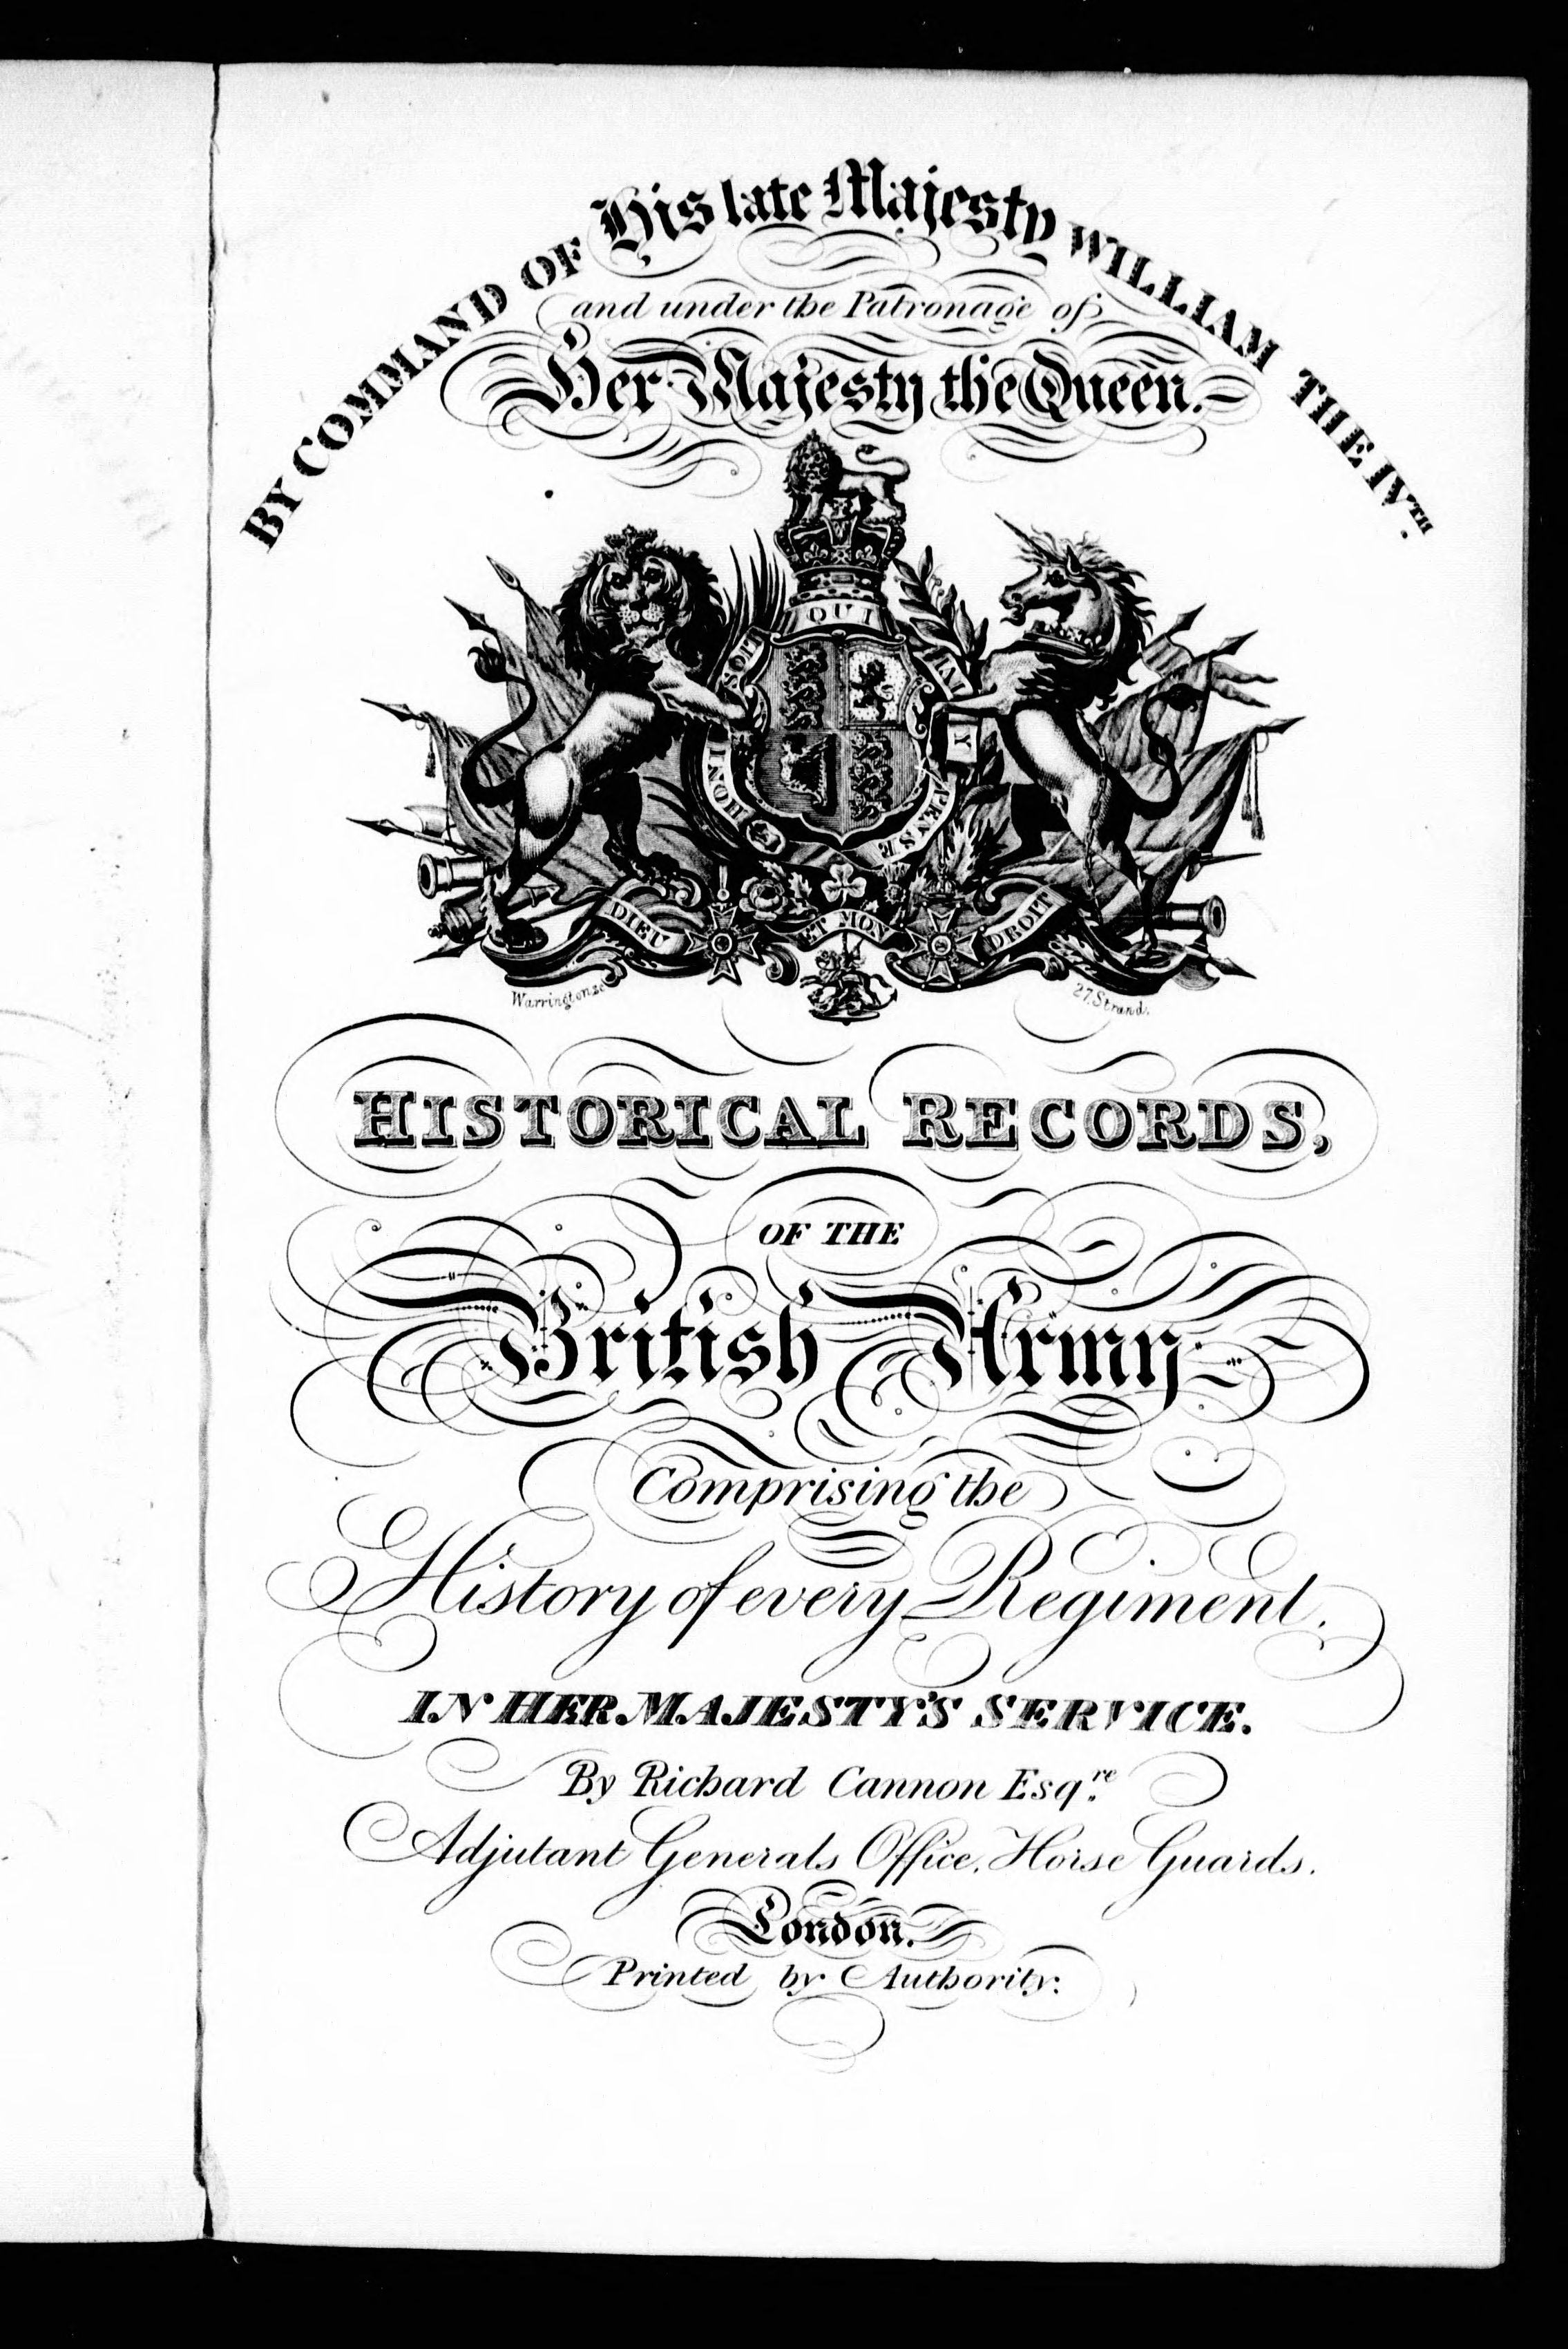 BY COMMAND OF His late Majesty WILLIAM THE IVTH.
and under the Patronage of
Her Majesty the Queen.
HONI SOIT QUI MAL Y PENSE
DIEU ET MON DROIT
Warrington sc. 27, Strand.
HISTORICAL RECORDS,
OF THE
British Army
Comprising the
History of every Regiment.
IN HER MAJESTY'S SERVICE.
By Richard Cannon Esqre.
Adjutant Generals Office, Horse Guards.
London.
Printed by Authority: